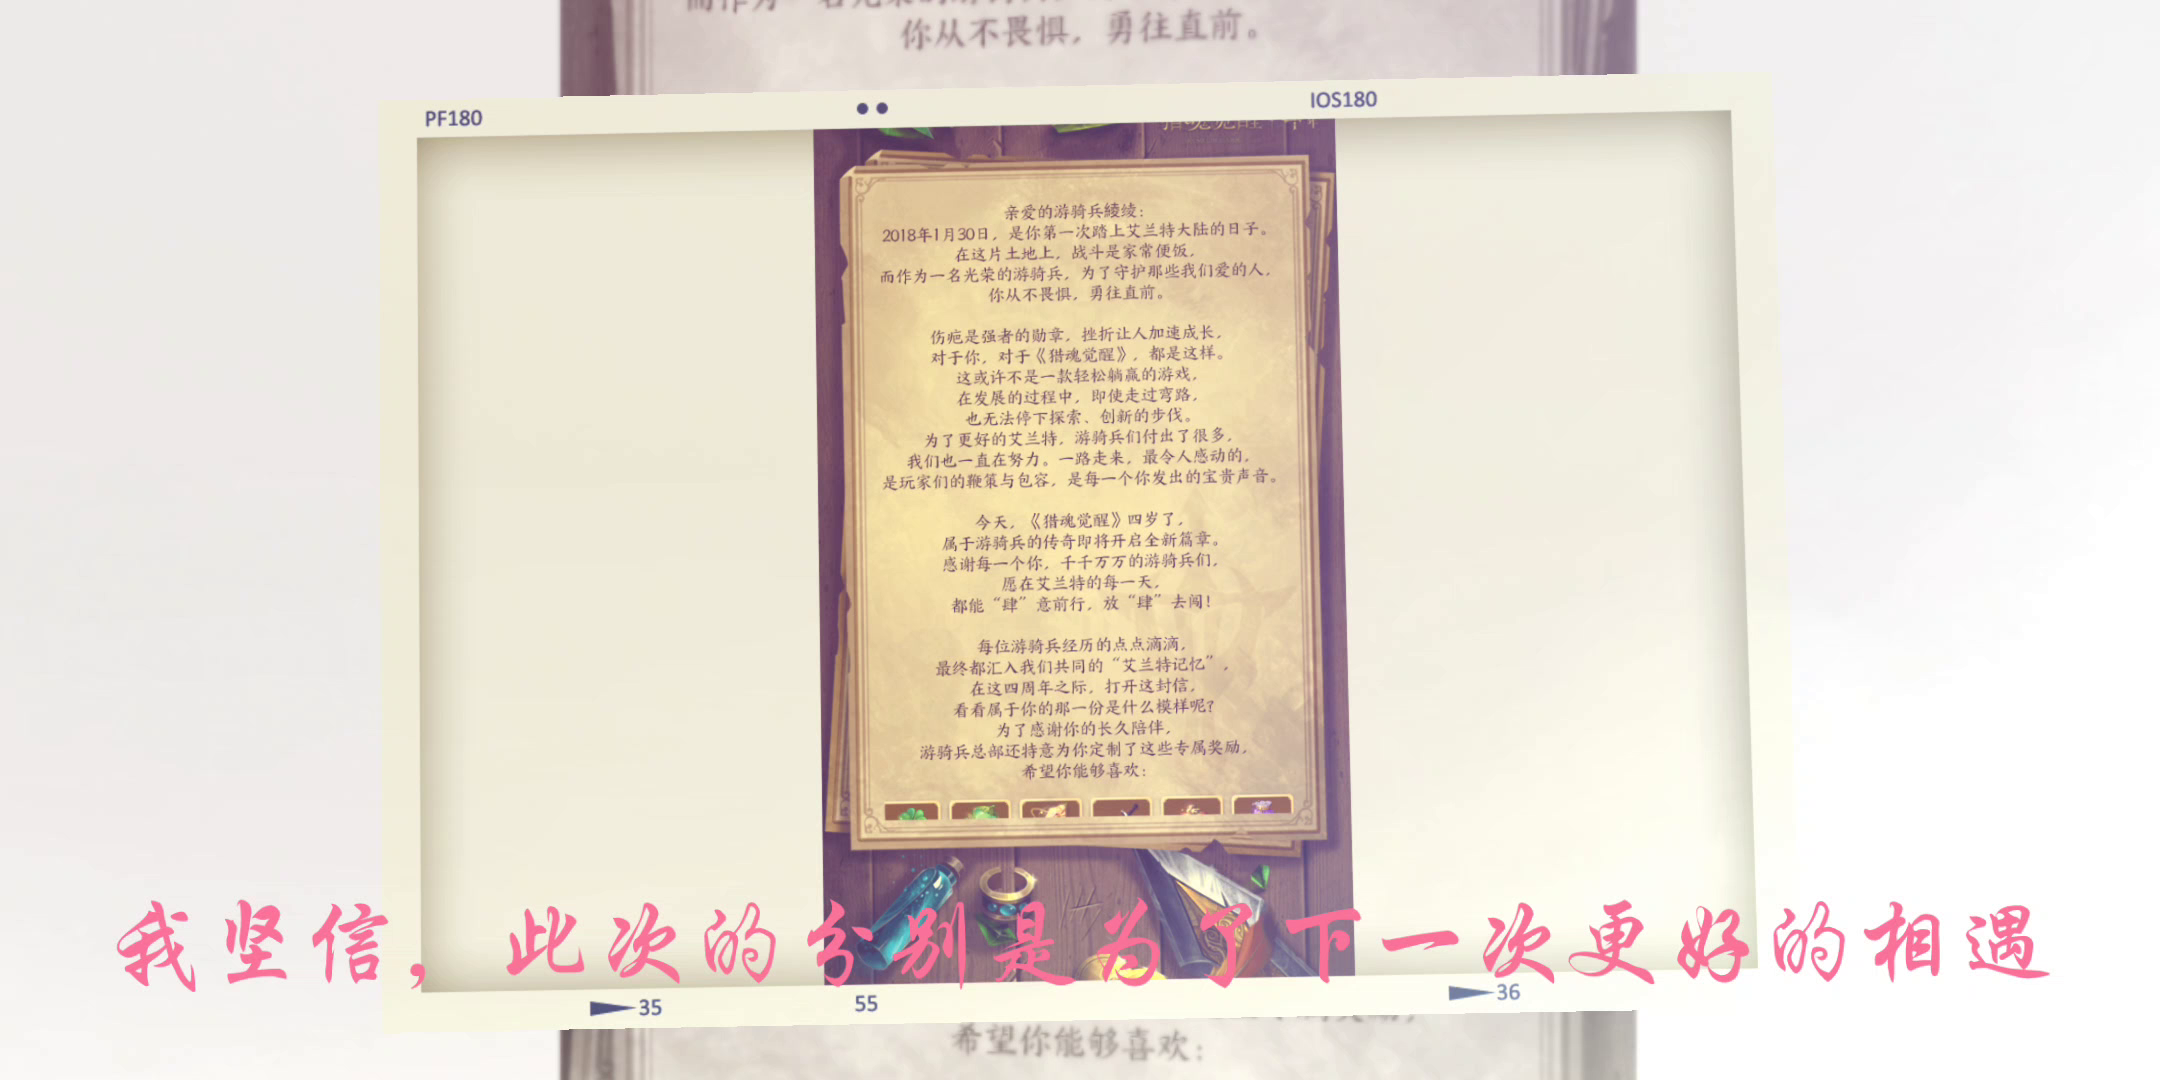 你从不畏惧，勇往直前。
PF180
IOS180
亲爱的游骑兵綾绫：
2018年1月30日，是你第一次踏上艾兰特大陆的日子。
在这片土地上，战斗是家常便饭，
而作为一名光荣的游骑兵，为了守护那些我们爱的人，
你从不畏惧，勇往直前。
伤疤是强者的勋章，挫折让人加速成长，
对于你，对于《猎魂觉醒》，都是这样。
这或许不是一款轻松躺赢的游戏，
在发展的过程中，即使走过弯路，
也无法停下探索、创新的步伐。
为了更好的艾兰特，游骑兵们付出了很多，
我们也一直在努力。一路走来，最令人感动的，
是玩家们的鞭策与包容，是每一个你发出的宝贵声音。
今天，《猎魂觉醒》四岁了，
属于游骑兵的传奇即将开启全新篇章。
感谢每一个你，千千万万的游骑兵们，
愿在艾兰特的每一天，
都能“肆”意前行，放“肆”去闯！
每位游骑兵经历的点点滴滴，
最终都汇入我们共同的“艾兰特记忆”，
在这四周年之际，打开这封信，
看看属于你的那一份是什么模样呢？
为了感谢你的长久陪伴，
游骑兵总部还特意为你定制了这些专属奖励，
希望你能够喜欢：
我坚信，此次的分别是为了下一次更好的相遇
35
55
36
希望你能够喜欢：